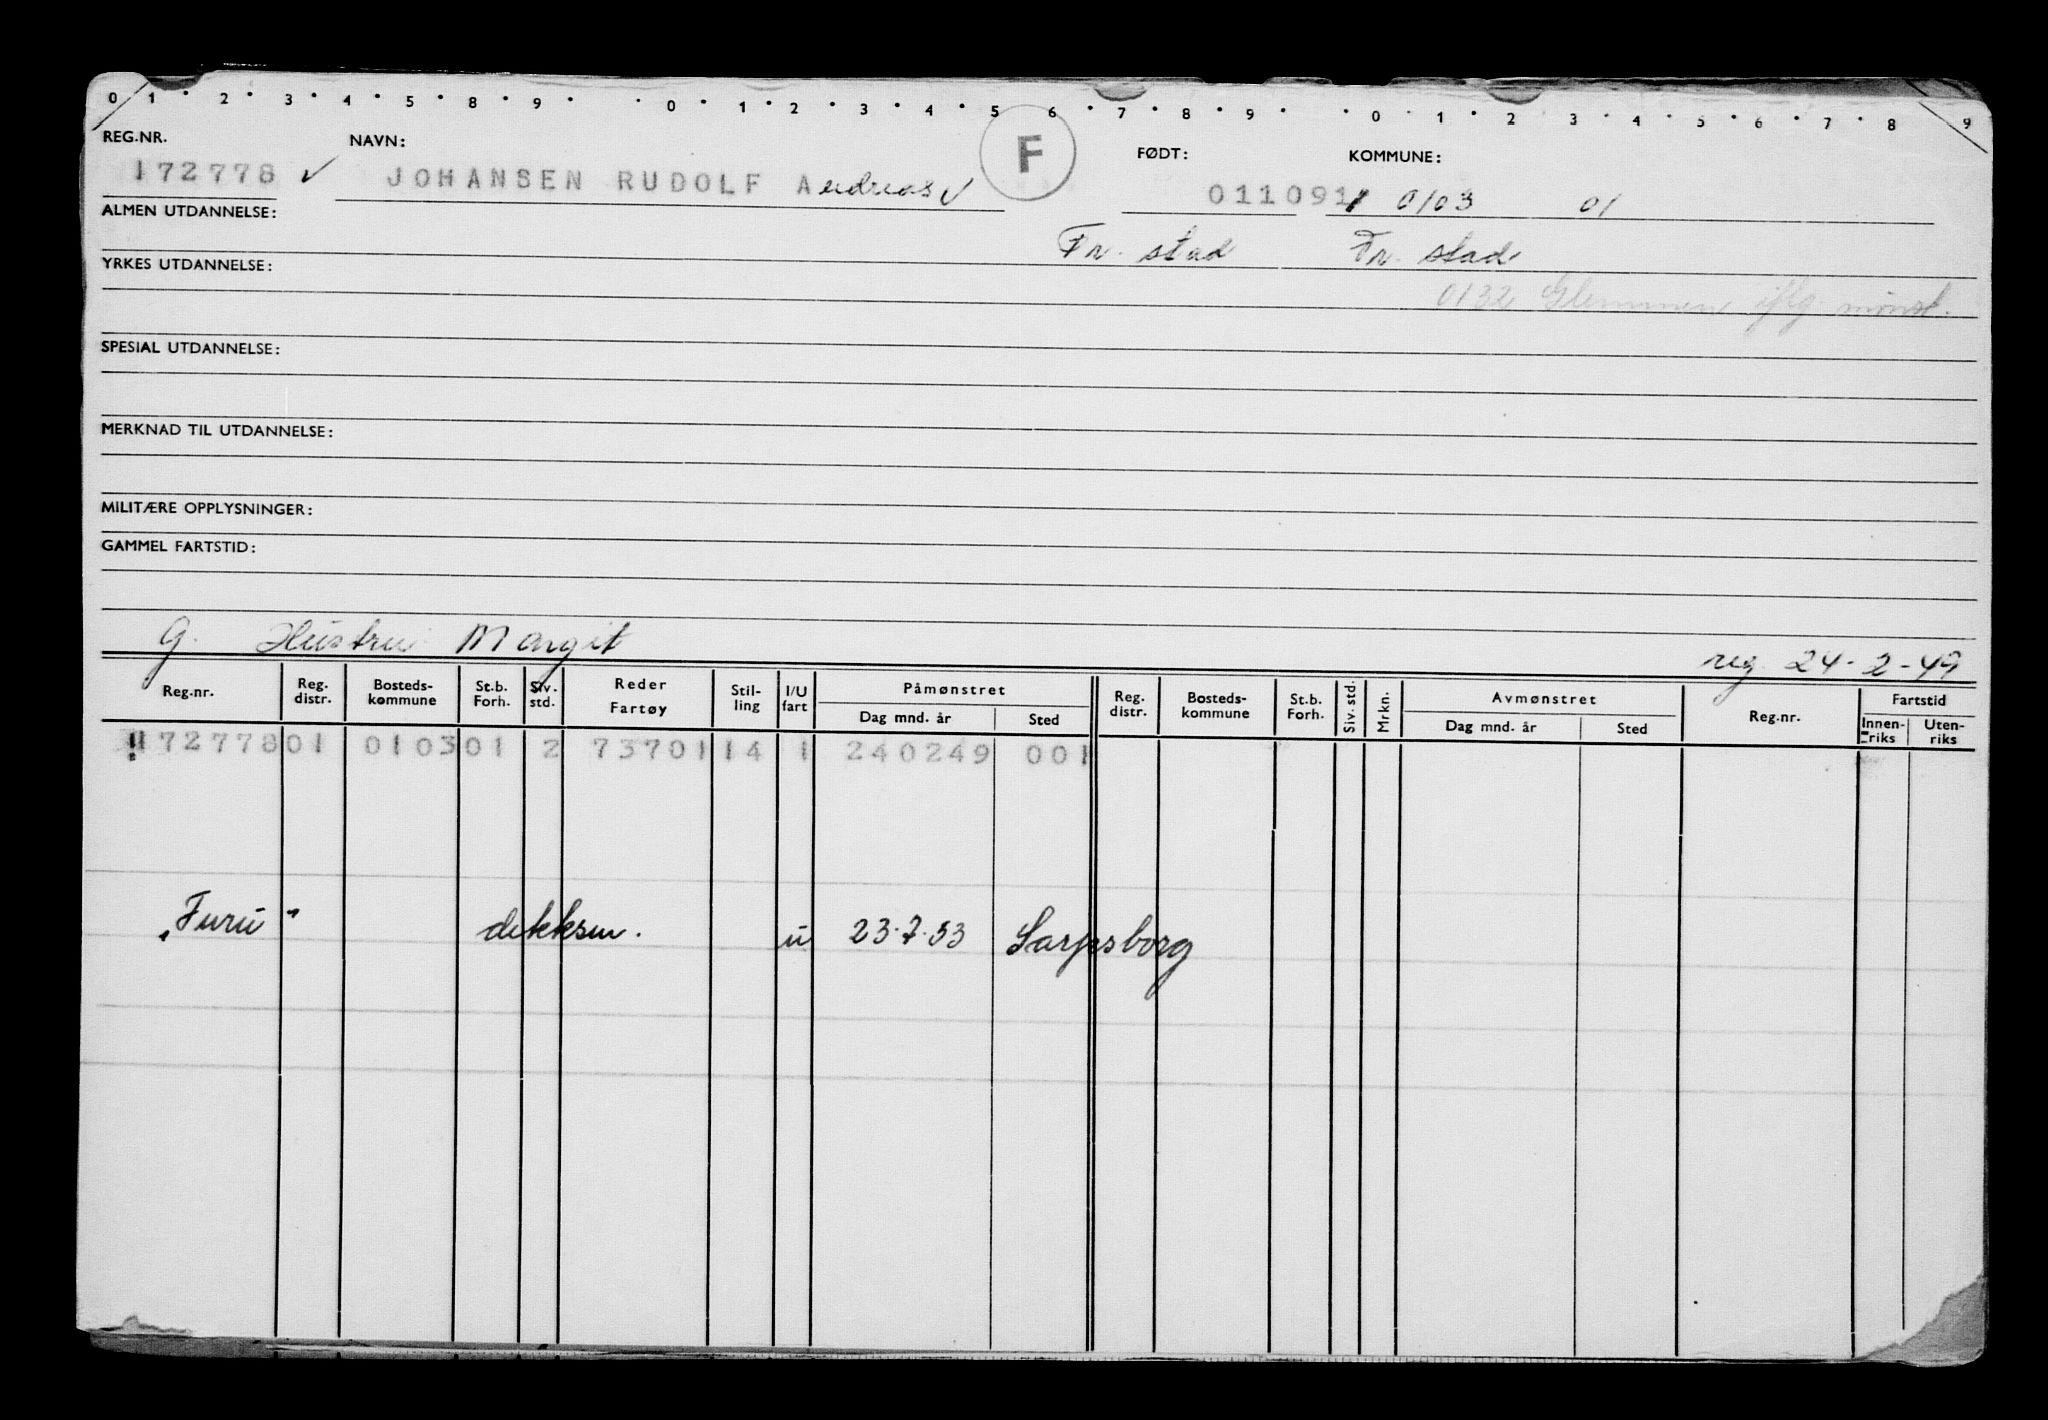 0 1 · 2 · 3 · 4 · 5 · 8 · 9 · · 0 · 1 · 2 · 3 · 4 · 5 6 · 7 · 8 · 9 · · 0 · 1 · 2 3 · 4 · 5 · 6 · 7 · 8 9
REG.NR. NAVN: F FØDT: KOMMUNE:
172778 ✓ JOHANSEN RUDOLF Andreas ✓ 011091 0103 01
ALMEN UTDANNELSE:
Fr. stad Fr. stad
YRKES UTDANNELSE:
0132 Glemmen iflg. mønst.
SPESIAL UTDANNELSE:
MERKNAD TIL UTDANNELSE:
MILITÆRE OPPLYSNINGER:
GAMMEL FARTSTID:
G. Hustru Margit reg. 24-2-49
Reg.nr. Reg. distr. Bosteds-kommune St.b. Forh. Siv. std. Reder Fartøy Stil-ling I/U fart Påmønstret Dag mnd. år Sted Reg. distr. Bosteds-kommune St.b. Forh. Siv. std. Mrkn. Avmønstret Dag mnd. år Sted Reg.nr. Fartstid Innen-riks Uten-riks
172778 01 0103 01 2 73701 14 1 240249 001
"Furu" dekksm. u 23.7.53 Sarpsborg